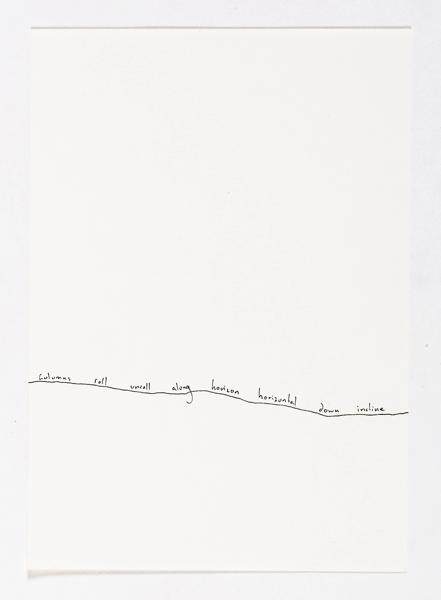 columns roll unroll along horizon horizontal down incline